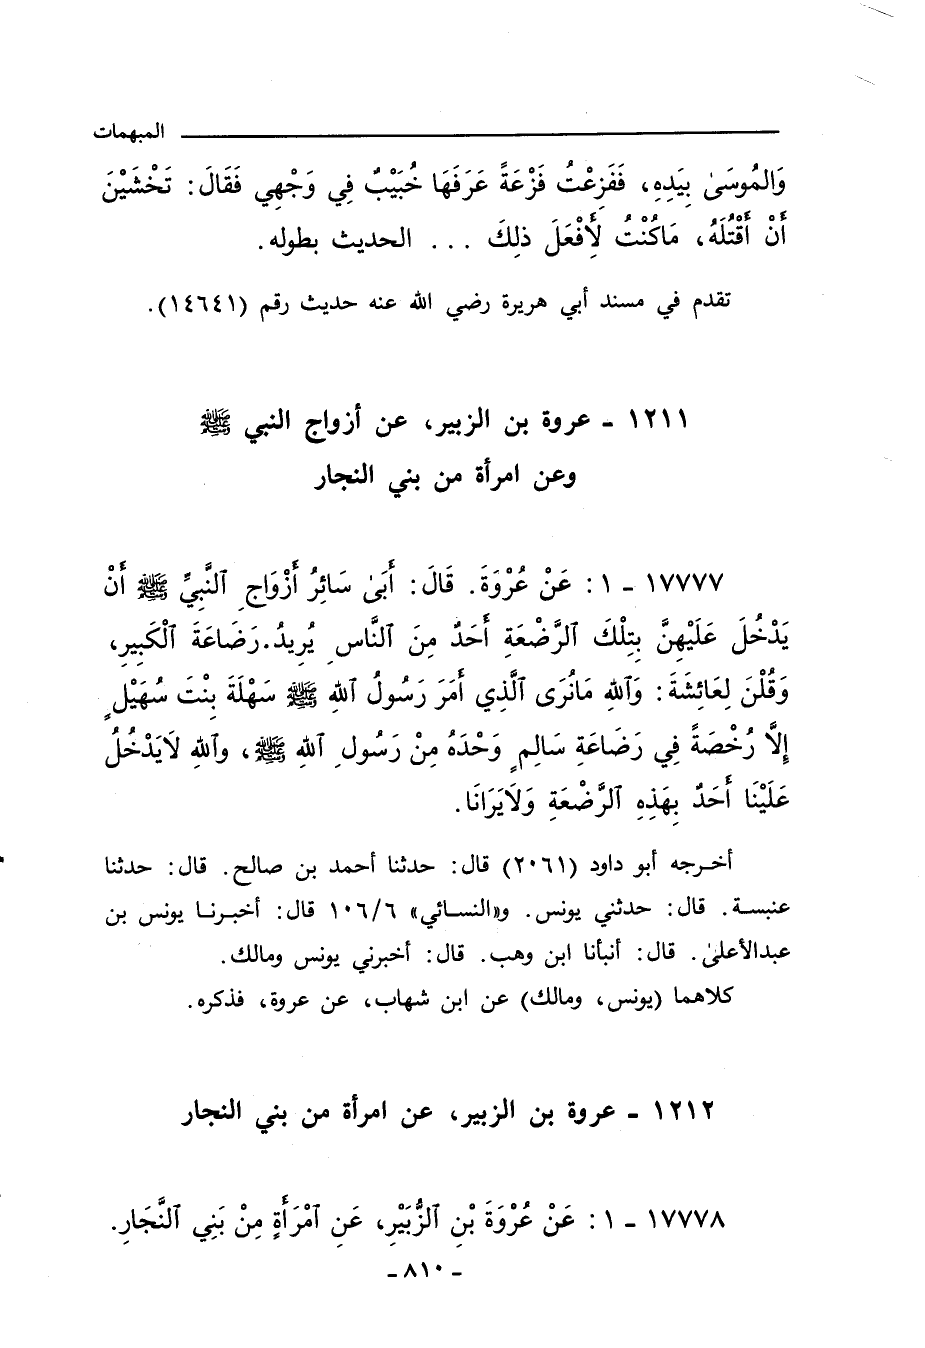 المبهمات
وَالمُوسَىٰ بِيَدِهِ، فَفَزِعْتُ فَزْعَةً عَرَفَهَا خُبَيْبٌ فِي وَجْهِي فَقَالَ: تَخْشَيْنَ
أَنْ أَقْتُلَهُ، مَاكُنْتُ لِأَفْعَلَ ذلِكَ ... الحديث بطوله.
تقدم في مسند أبي هريرة رضي الله عنه حديث رقم (١٤٦٤١).
١٢١١ - عروة بن الزبير، عن أزواج النبي ﷺ
وعن امرأة من بني النجار
١٧٧٧٧ - ١: عَنْ عُرْوَةَ. قَالَ: أَبَىٰ سَائِرُ أَزْوَاجِ ٱلنَّبِيِّ ﷺ أَنْ
يَدْخُلَ عَلَيْهِنَّ بِتِلْكَ ٱلرَّضْعَةِ أَحَدٌ مِنَ ٱلنَّاسِ يُرِيدُ. رَضَاعَةَ ٱلْكَبِيرِ،
وَقُلْنَ لِعَائِشَةَ: وَٱللهِ مَانُرَى ٱلَّذِي أَمَرَ رَسُولُ ٱللهِ ﷺ سَهْلَةَ بِنْتَ سُهَيْلٍ
إِلَّا رُخْصَةً فِي رَضَاعَةِ سَالِمٍ وَحْدَهُ مِنْ رَسُولِ ٱللهِ ﷺ، وٱللهِ لَايَدْخُلُ
عَلَيْنَا أَحَدٌ بِهَذِهِ ٱلرَّضْعَةِ وَلَايَرَانَا.
أخرجه أبو داود (٢٠٦١) قال: حدثنا أحمد بن صالح. قال: حدثنا
عنبسة. قال: حدثني يونس. و«النسائي» ١٠٦/٦ قال: أخبرنا يونس بن
عبدالأعلىٰ. قال: أنبأنا ابن وهب. قال: أخبرني يونس ومالك.
كلاهما (يونس، ومالك) عن ابن شهاب، عن عروة، فذكره.
١٢١٢ - عروة بن الزبير، عن امرأة من بني النجار
١٧٧٧٨ - ١: عَنْ عُرْوَةَ بْنِ ٱلزُّبَيْرِ، عَنِ ٱمْرَأَةٍ مِنْ بَنِي ٱلنَّجَارِ.
- ٨١٠ -